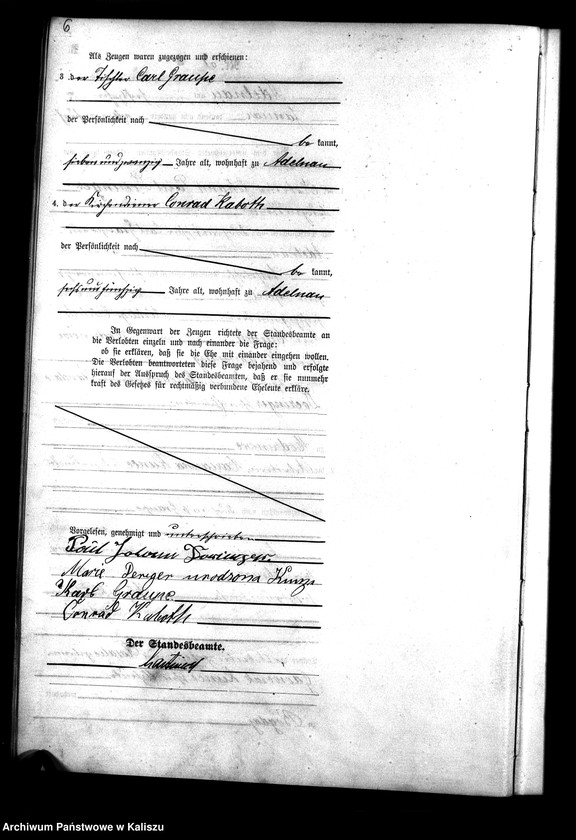 6
Als Zeugen waren zugezogen und erschienen:
3. der Tischler Carl Graupe
der Persönlichkeit nach
be kannt,
sieben und zwanzig Jahre alt, wohnhaft zu Adelnau
4. der Kirchendiener Conrad Kaboth
der Persönlichkeit nach
be kannt,
sechs und fünfzig Jahre alt, wohnhaft zu Adelnau
In Gegenwart der Zeugen richtete der Standesbeamte an
die Verlobten einzeln und nach einander die Frage:
ob sie erklären, daß sie die Ehe mit einander eingehen wollen.
Die Verlobten beantworteten diese Frage bejahend und erfolgte
hierauf der Ausspruch des Standesbeamten, daß er sie nunmehr
kraft des Gesetzes für rechtmäßig verbundene Eheleute erkläre.
Vorgelesen, genehmigt und unterschrieben
Paul Johann
Marie urodzona
Karl Graupe
Conrad Kaboth
Der Standesbeamte.
Archiwum Państwowe w Kaliszu